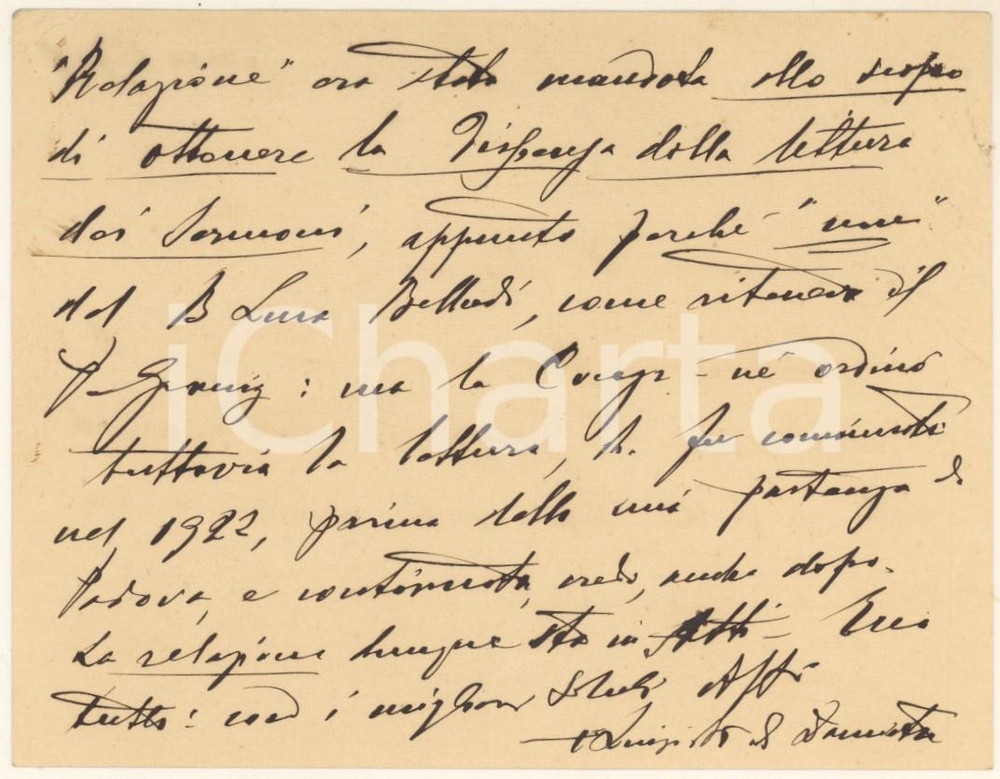 "Relazione" era stata mandata allo scopo
di ottenere la Dispensa della lettura
dei Sermoni, appunto perché "non"
del B Luca Belludi, come riteneva il
P.
: ma la Congr - né ordinò
tuttavia la lettura, fu cominciata
nel 1922, prima della mia partenza di
Padova, e continuata, credo, anche dopo.
La relazione dunque sta in Atti - Ecco
tutto: con i migliori saluti Aff
+ Luigi di Damietta
iCharta